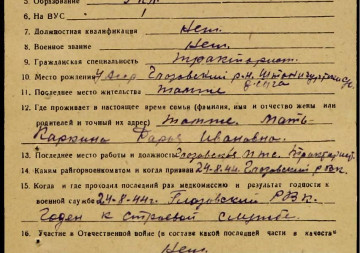 5. Образование
6. На ВУС 1
7. Должностная квалификация Нет.
8. Военное звание Нет.
9. Гражданская специальность Тракторист.
10. Место рождения УАССР Глазовский р-н,
11. Последнее место жительства Тоже
12. Где проживает в настоящее время семья (фамилия, имя и отчество жены или
родителей и точный их адрес) Тоже. Мать-
Дарья Ивановна.
13. Последнее место работы и должность Глазовская МТС. Тракторист.
14. Каким райгорвоенкоматом и когда призван 24-8-44г. Глазовский РВК.
15. Когда и где проходил последний раз медкомиссию и результат годности к
военной службе 24-8-44г Глазовский РВК.
Годен к строевой службе.
16. Участие в Отечественной войне (в составе какой последней части в качестве
Нет.